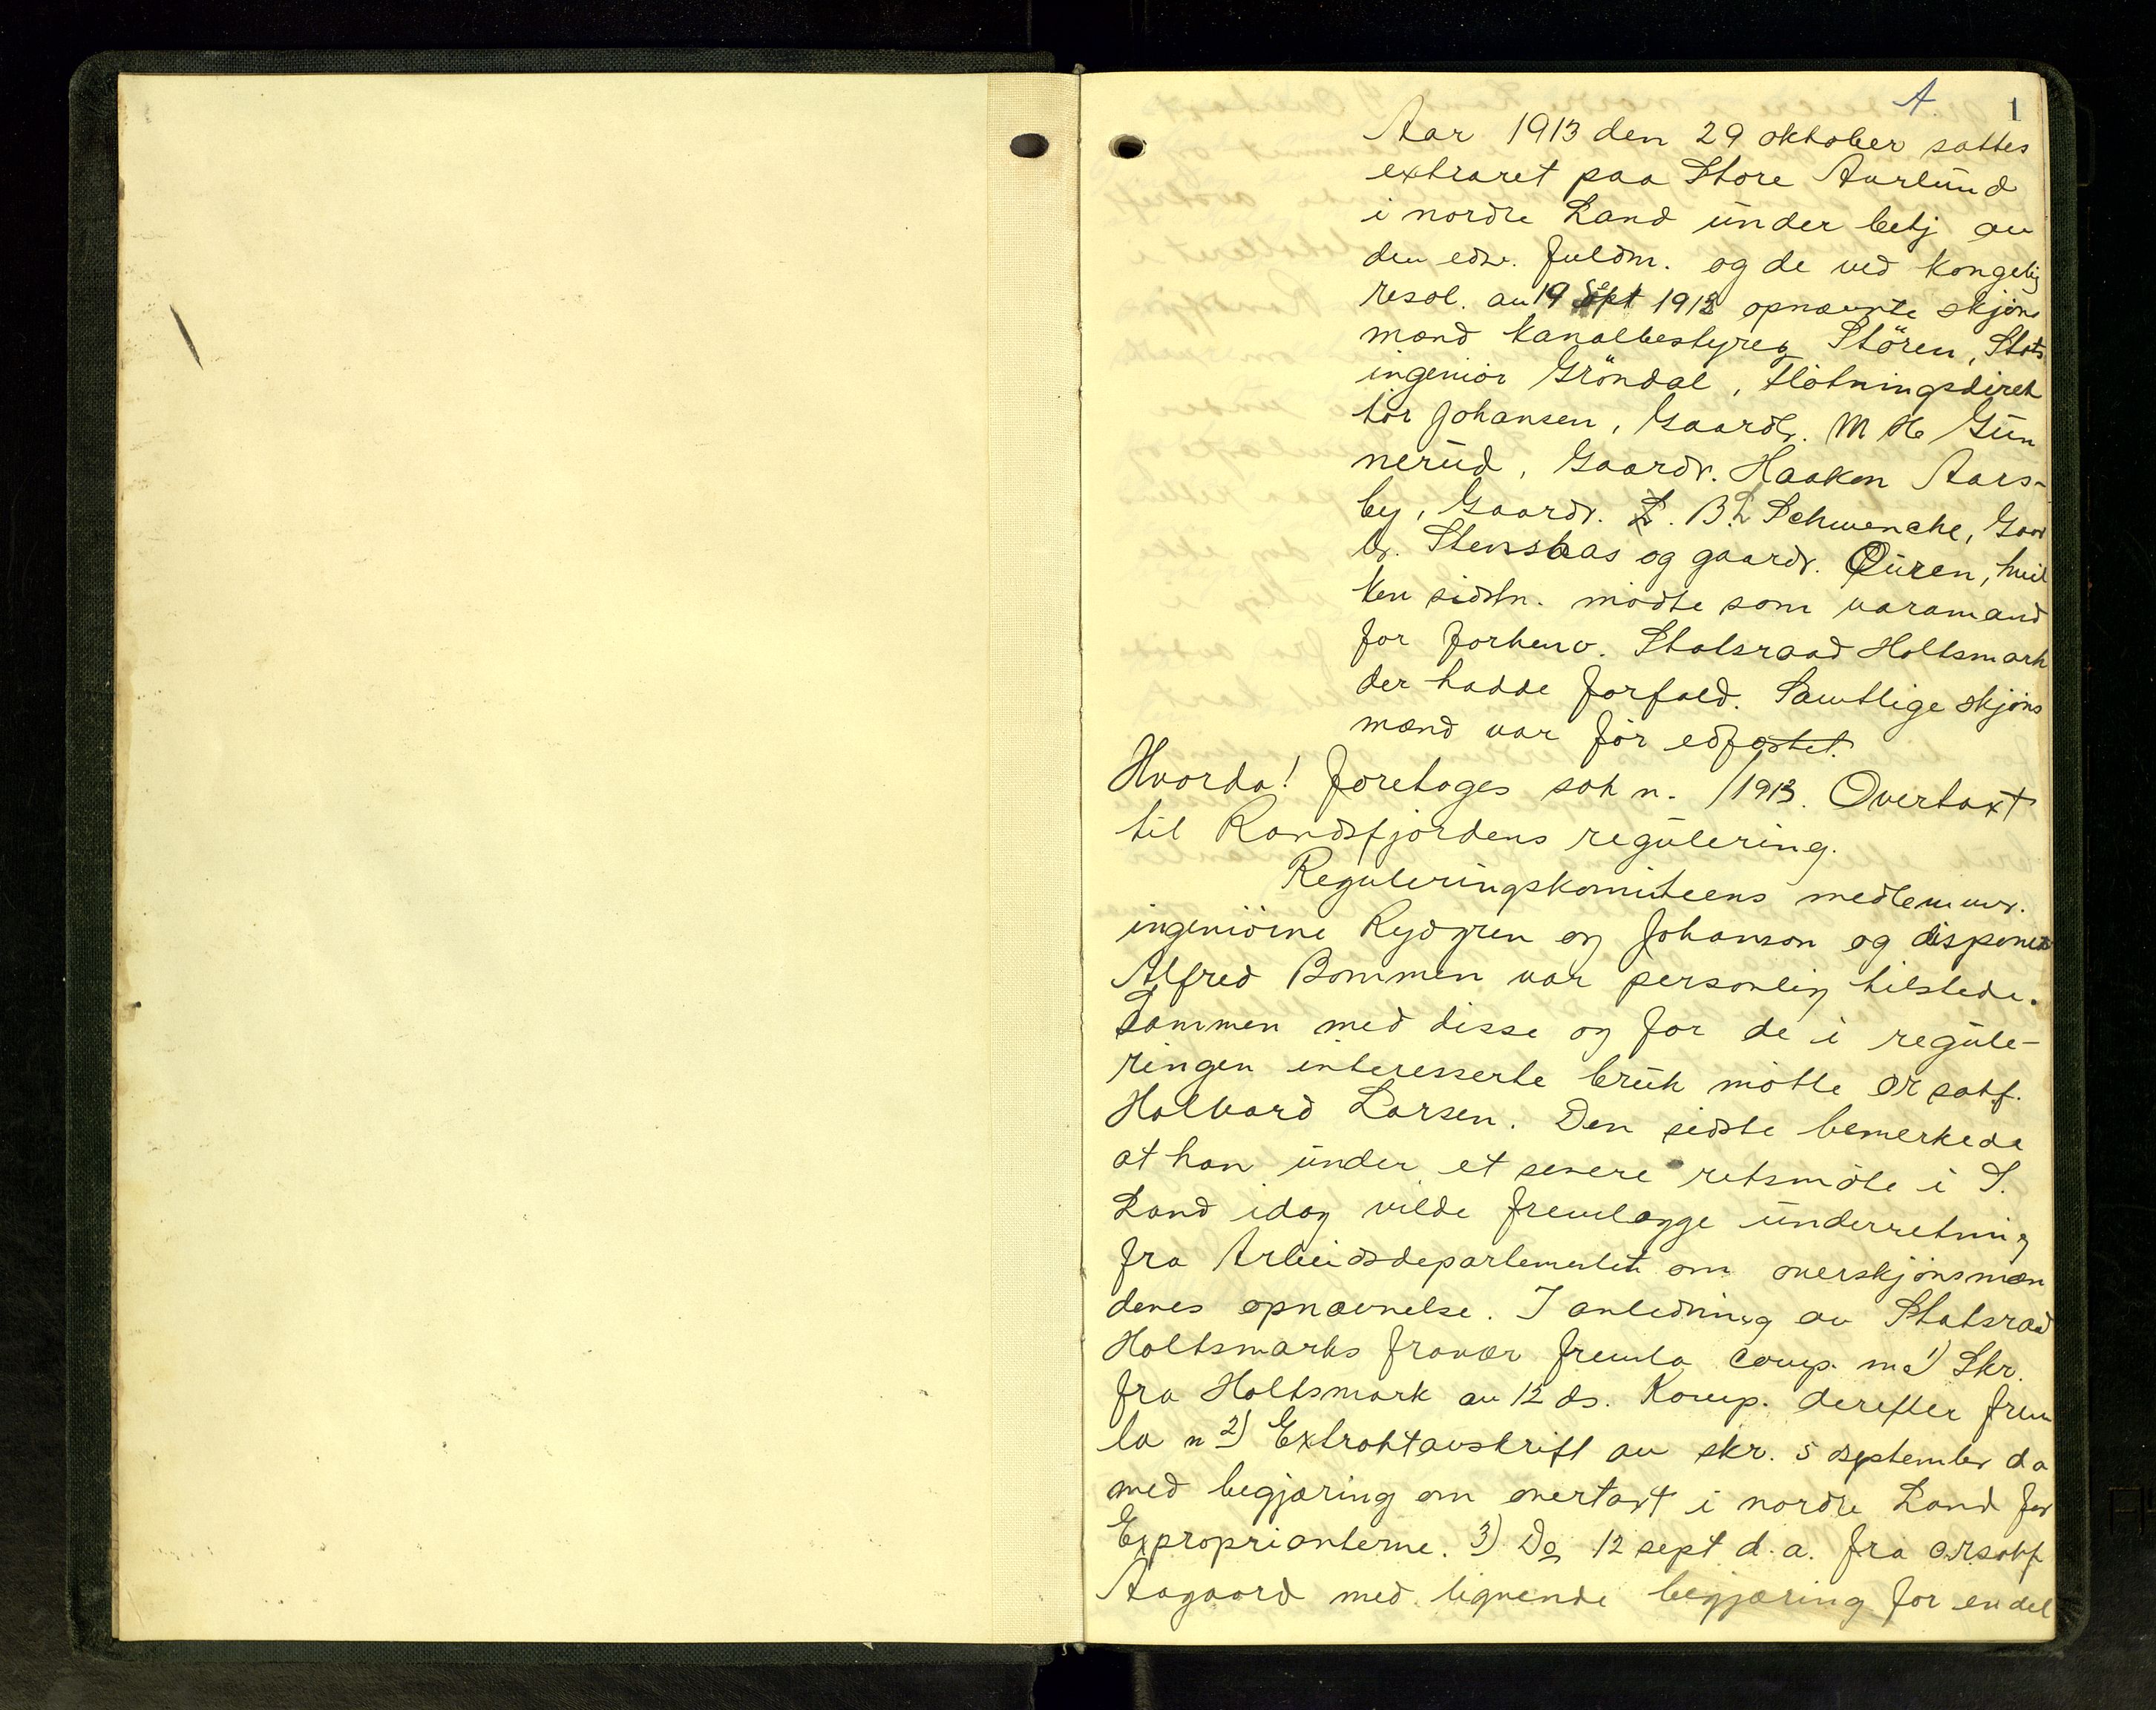 A. 1
Aar 1913 den 29 oktober sattes
extraret paa Store Aurlund
i nordre Land under betj av
den edsv. fuldm. og de ved kongelig
resol. av 19 Sept 1913 opnævnte skjøns
mænd kanalbestyrer Støren, Stats
ingeniør Grøndal, Fløtningsdirek
tør Johansen, Gaardbr. M H Gun
nerud, Gaardbr. Haakon Aars-
by, Gaardbr. B. L Schwencke, Gaar
br. Stensbaas og gaardbr. Quren, hvil
ken sidstn. mødte som varamand
for forhenv. Statsraad Holtsmark
der hadde forfald. Samtlige skjøns
mænd var før edfæstet.
Hvorda! foretoges sak n. /1913. Overtaxt
til Randsfjordens regulering.
Reguleringskomiteens medlemmer.
ingeniørne Rydgren og Johanson og disponent
Alfred Bommen var personlig tilstede.
Sammen med disse og for de i regule-
ringen interesserte bruk møtte or sakf.
Halvard Larsen. Den sidste bemerkede
at han under et senere retsmøte i S.
Land idag vilde fremlægge underretning
fra Arbeidsdepartementet om overskjønsmæn
denes opnævnelse. I anledning av Statsraad
Holtsmarks fravær fremla comp. n 1) Skr.
fra Holtsmark av 12 ds. Komp. derefter frem
la n 2) Extraktavskrift av skr. 5 september d a
med begjæring om overtaxt i nordre Land for
Exproprianterne. 3) Do 12 sept d. a. fra O.R.sakf
Aagaard med lignende begjæring for en del